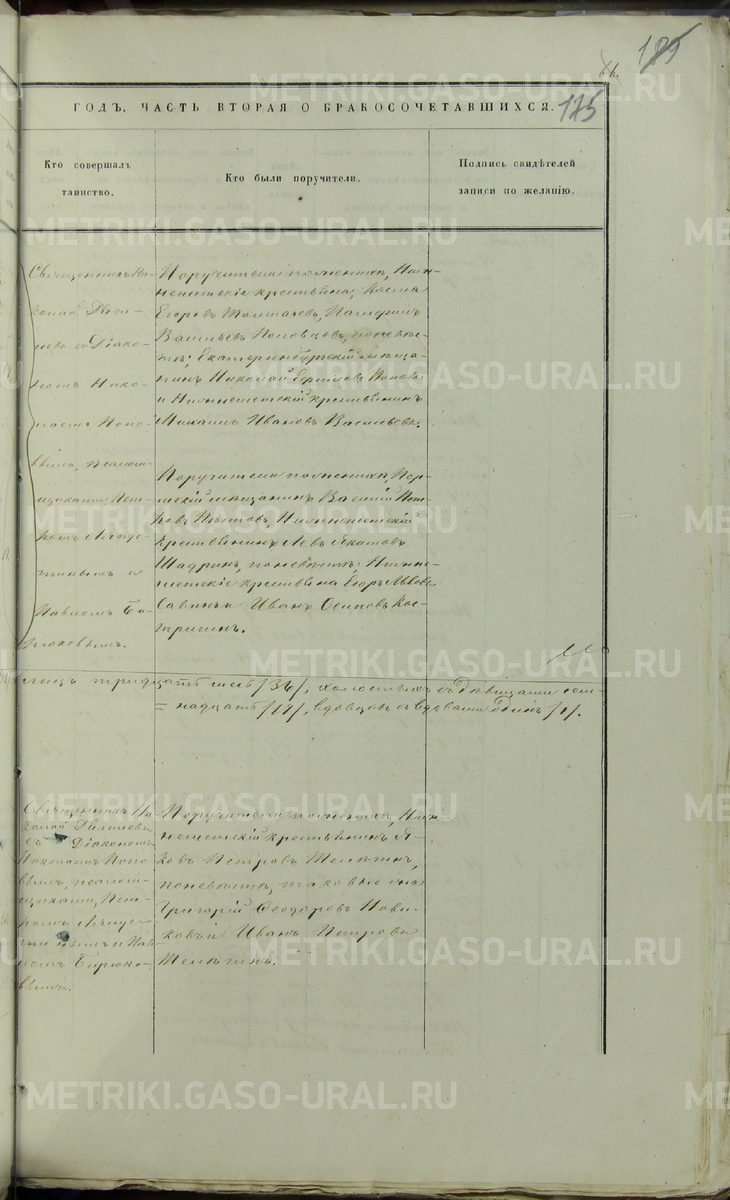 185
66.
ГОДЪ, ЧАСТЬ ВТОРАЯ О БРАКОСОЧЕТАВШИХСЯ.
175
Кто совершалъ
таинство.
Кто были поручители.
Подпись свидѣтелей
записи по желанію.
Священникъ Ни-
колай
съ Діако-
номъ Нико-
лаемъ Попо-
вымъ, псалом-
щиками, Пет-
ромъ
и
Павломъ Би-
рюковымъ.
Поручители по женихѣ, Нижне-
исетскіе крестьяне, Косма
Егоровъ Толмачевъ,
Васильевъ Поповцовъ, по невѣс-
тѣ; Екатеринбургскій мѣща-
нинъ Николай Поповъ
и Нижнеисетскій крестьянинъ
Михаилъ Ивановъ Васильевъ.
Поручители по женихѣ, Пер-
мскій мѣщанинъ Василій Пет-
ровъ Нижнеисетскій
крестьянинъ Левъ
Шадринъ, по невѣстѣ; Нижне-
исетскіе крестьяне Егоръ Львовъ
Савинъ и Иванъ Осиповъ Кос-
тригинъ.
лицъ тридцать шесть /36/, холостыхъ съ дѣвицами сем-
надцать /17/, вдовцовъ съ вдовами одинъ /1/.
Священникъ Ни-
колай
съ Діакономъ
Николаемъ Попо-
вымъ, псалом-
щиками, Пет-
ромъ
и Пав-
ломъ Бирюко-
вымъ.
Поручители по женихѣ, Ниж-
неисетскій крестьянинъ Я-
ковъ Петровъ
по невѣстѣ, таковые же
Григорій Феодоровъ Нови-
ковъ и Иванъ Петровъ
METRIKI.GASO-URAL.RU